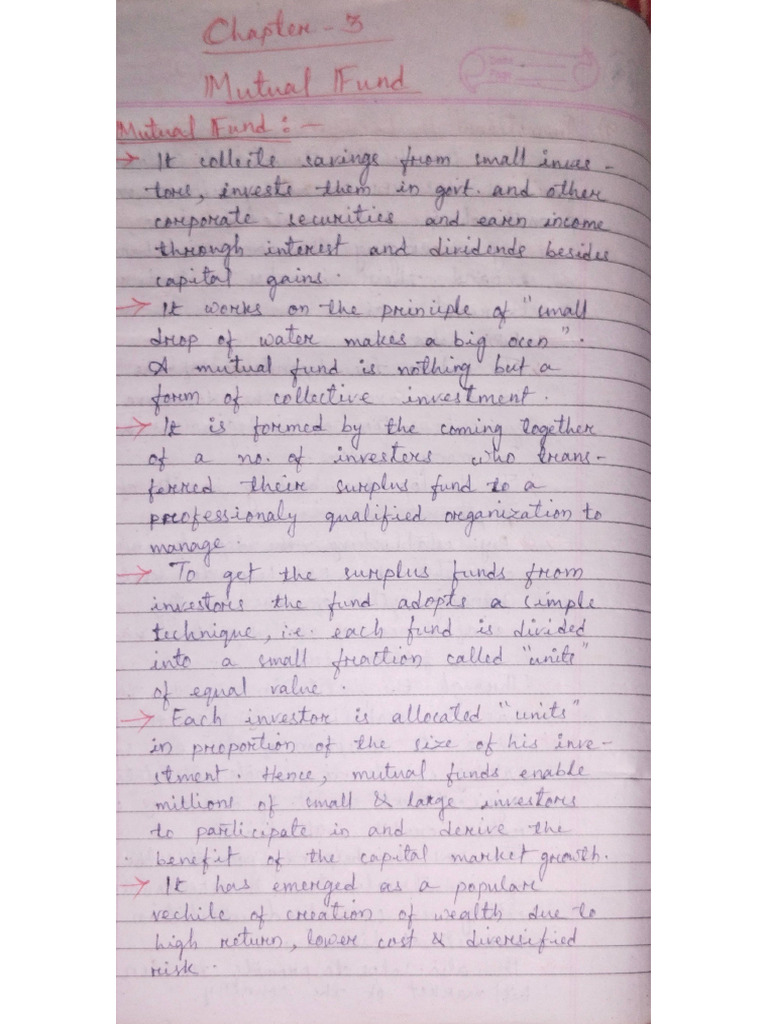 Chapter - 3
Mutual Fund
Mutual Fund : -
→ It collects savings from small inves -
tors, invests them in govt. and other
corporate securities and earn income
through interest and dividends besides
capital gains.
→ It works on the principle of "small
drop of water makes a big ocen".
A mutual fund is nothing but a
form of collective investment.
→ It is formed by the coming together
of a no. of investors who trans -
ferred their surplus fund to a
professionaly qualified organization to
manage.
→ To get the surplus funds from
investors the fund adopts a simple
technique, i.e. each fund is divided
into a small fraction called "units"
of equal value.
→ Each investor is allocated "units"
in proportion of the size of his inve -
stment. Hence, mutual funds enable
millions of small & large investors
to participate in and derive the
benefit of the capital market growth.
→ It has emerged as a popular
vechile of creation of wealth due to
high return, lower cost & diversified
risk.